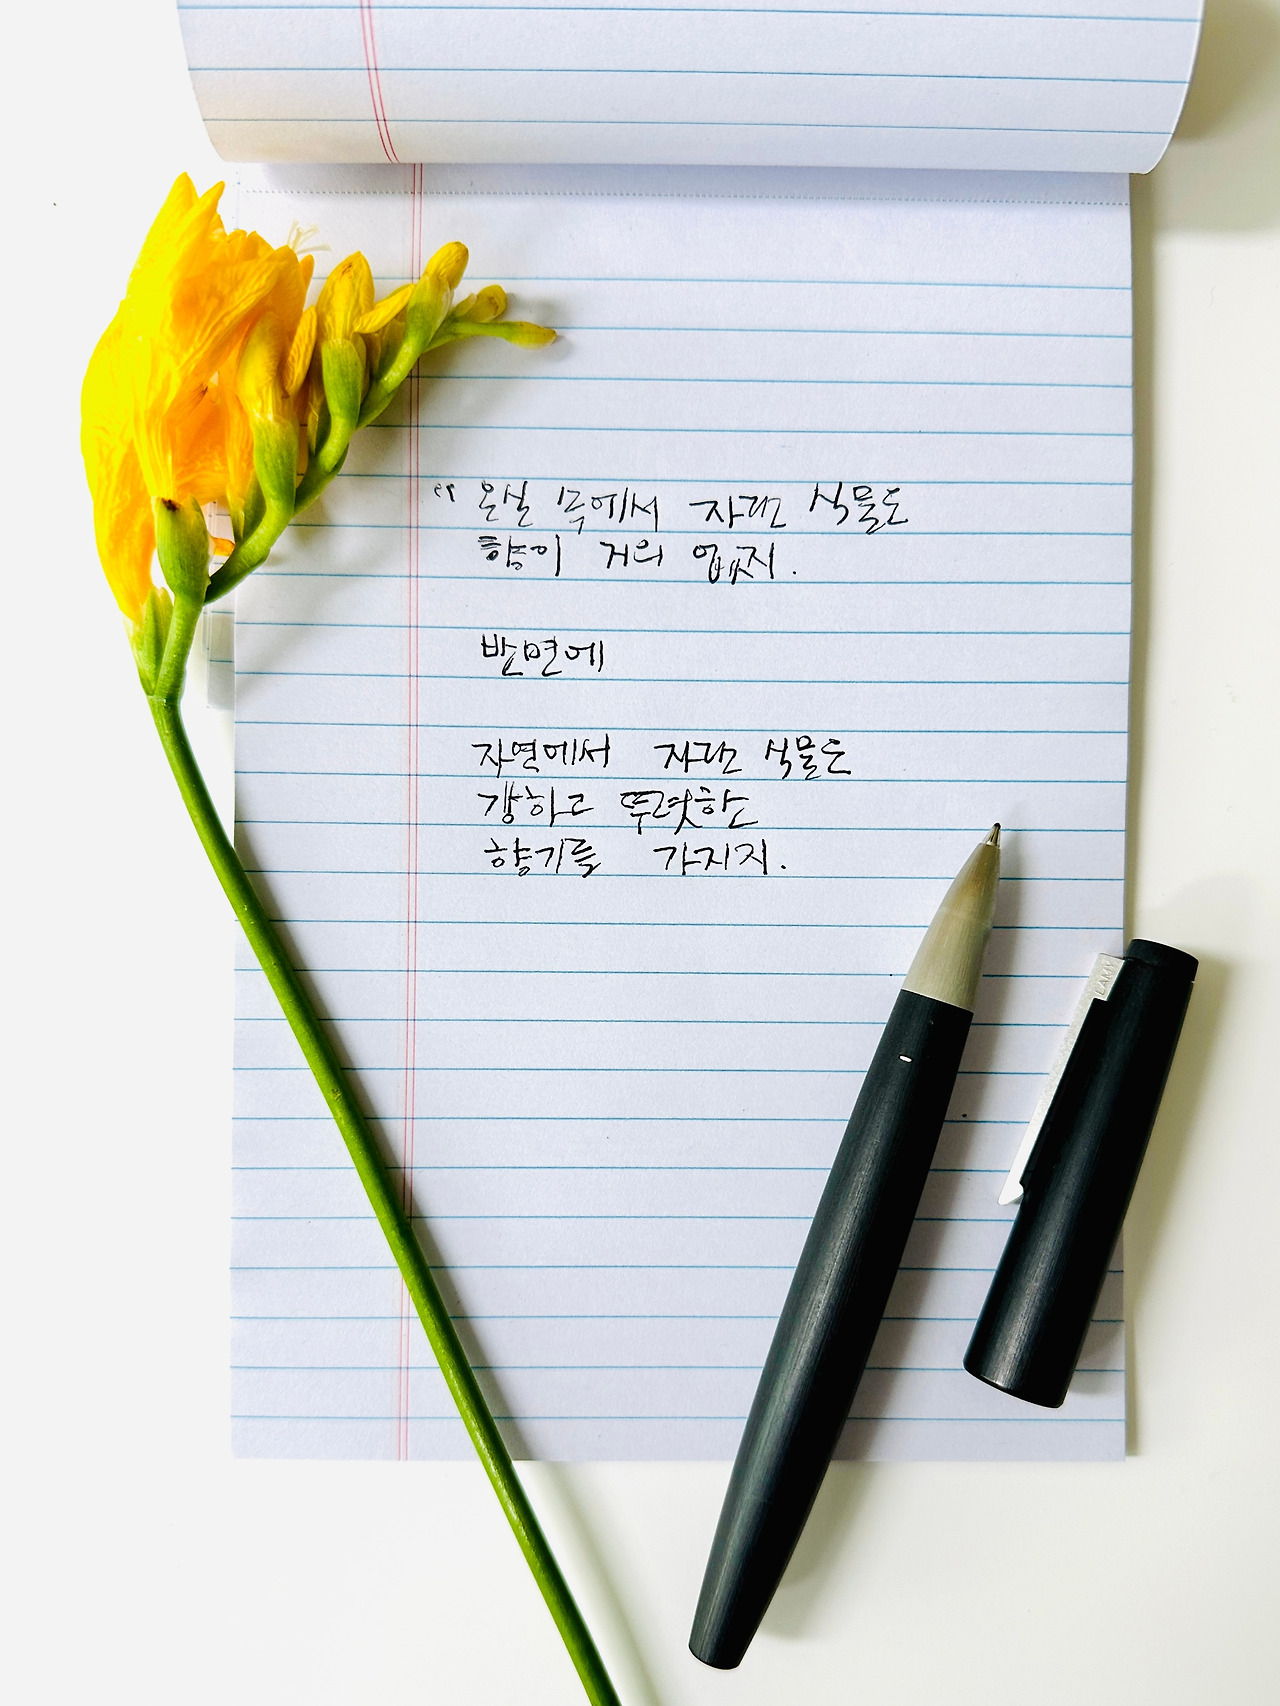 “ 온실 속에서 자란 식물도
향이 거의 없지.
반면에
자연에서 자란 식물도
강하고 뚜렷한
향기를 가지지.
LAMY